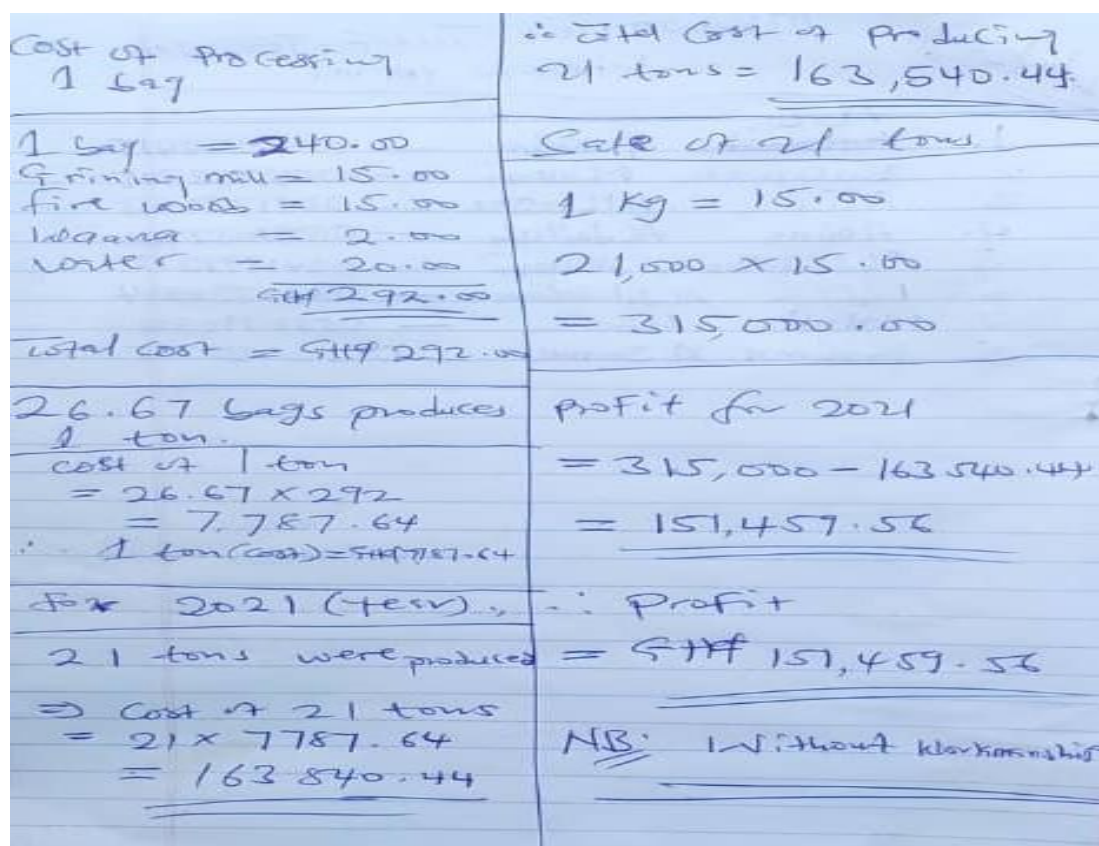 Cost of Processing
1 bag
1 bag = 240.00
Grining mill = 15.00
fire woods = 15.00
= 2.00
water = 20.00
GH₵ 292.00
Total cost = GH₵ 292.00
26.67 bags produces
1 ton.
cost of 1 ton
= 26.67 x 292
= 7,787.64
∴ 1 ton (cost) = GH₵ 7787.64
for 2021 (year),
21 tons were produced
⇒ Cost of 21 tons
= 21 x 7787.64
= 163 540.44
∴ Total Cost of Producing
21 tons = 163,540.44
Sale of 21 tons
1 Kg = 15.00
21,000 x 15.00
= 315,000.00
profit for 2021
= 315,000 - 163 540.44
= 151,459.56
∴ Profit
= GH₵ 151,459.56
NB: Without Workmanship